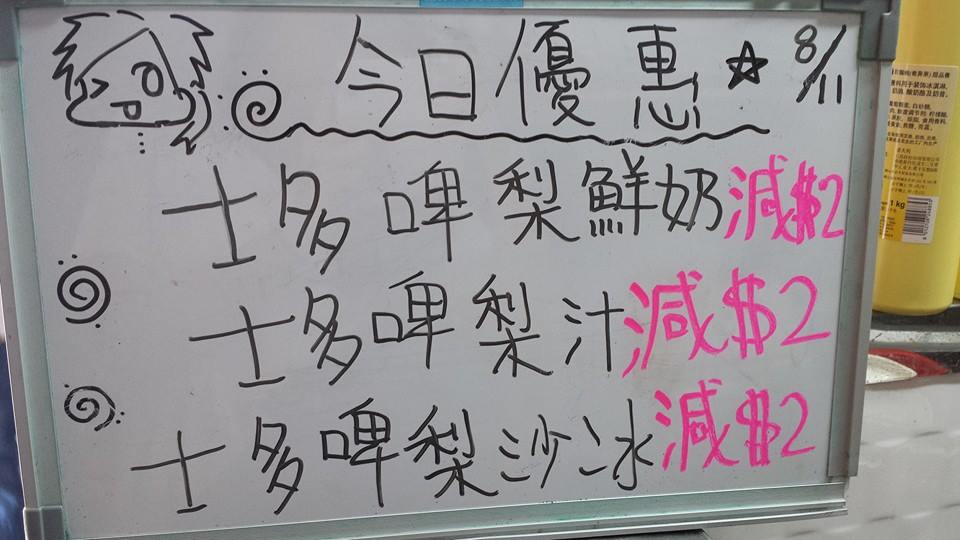 今日優惠☆ 8/11
士多啤梨鮮奶減$2
士多啤梨汁減$2
士多啤梨沙冰減$2
1 kg